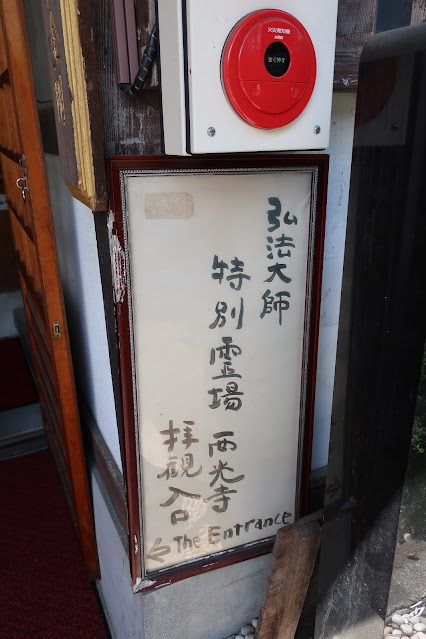 火災報知機
強く押す
弘法大師
特別霊場 西光寺
拝観入口
← The Entrance